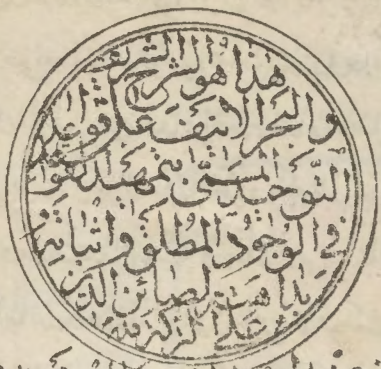 هذا هو الشرح الشريف
والبحر الانيف على قواعد
التوحيد المسمى بتمهيد القواعد
في الوجود المطلق واثباته
بداهته لصائن الدين
على التركة